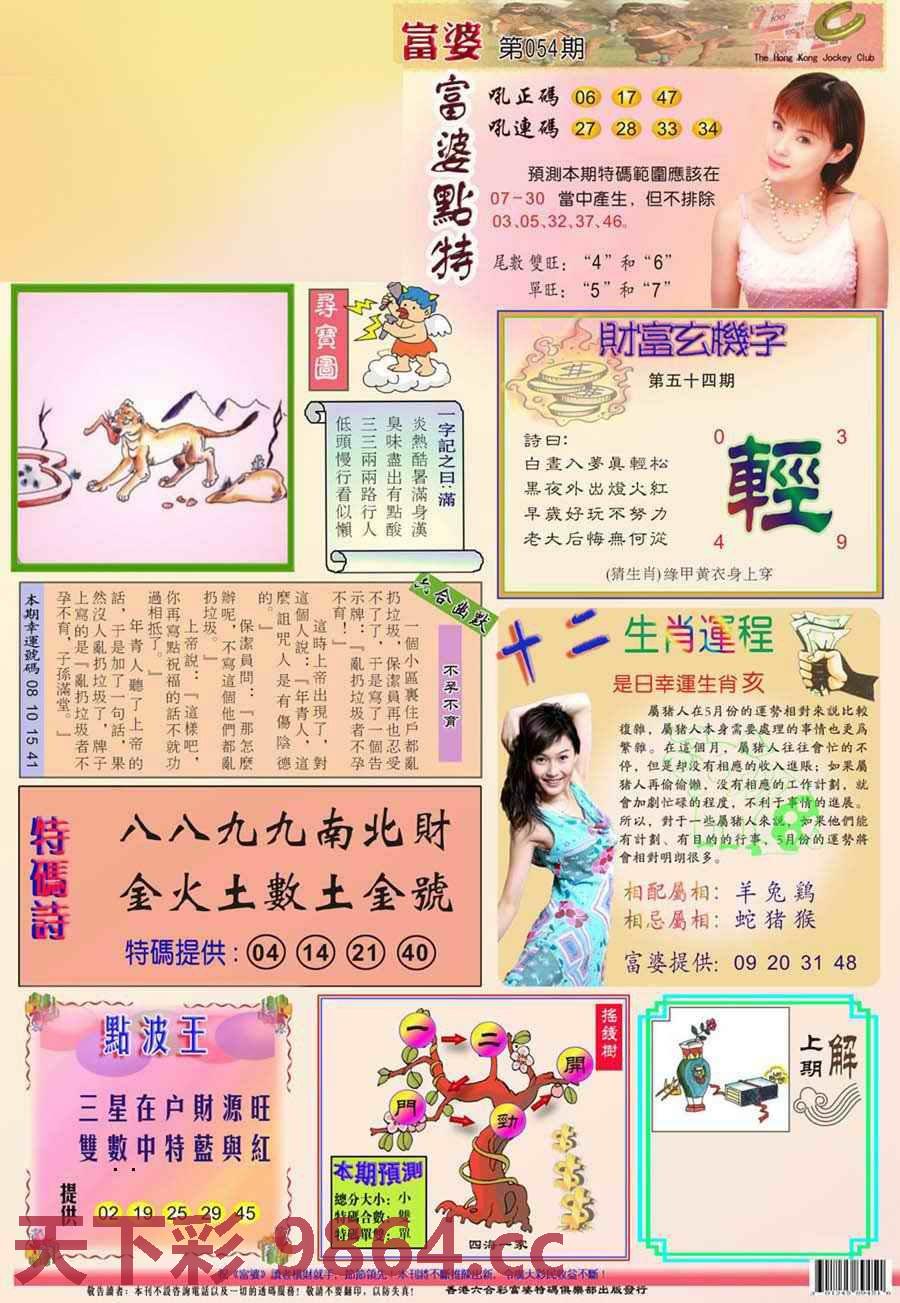 富婆 第054期
The Hong Kong Jockey Club
富婆點特
吼正碼 06 17 47
吼連碼 27 28 33 34
預測本期特碼範圍應該在
07-30 當中產生，但不排除
03、05、32、37、46。
尾數雙旺：“4”和“6”
單旺：“5”和“7”
尋寶圖
一字記之曰：滿
炎熱酷暑滿身漢
臭味盡出有點酸
三三兩兩路行人
低頭慢行看似懶
財富玄機字
第五十四期
詩曰：
白晝入夢真輕松
黑夜外出燈火紅
早歲好玩不努力
老大后悔無何從
0 3
輕
4 9
(猜生肖)綠甲黃衣身上穿
六合幽默
不孕不育
一個小區裏住戶都亂
扔垃圾，保潔員再也忍受
不了了，于是寫了一個告
示牌：『亂扔垃圾者不孕
不育！』
這時上帝出現了，對
這個人説：『年青人，什
麼詛咒人是有傷陰德
的。』
保潔員問：『那怎麼
辦呢，不寫這個他們都亂
扔垃圾。』
上帝説：『這樣吧，
你再寫點祝福的話不就功
過相抵了。』
年青人聽了上帝的
話，于是加了一句話，果
然沒人亂扔垃圾了，牌子
上寫的是『亂扔垃圾者不
孕不育，子孫滿堂。』
本期幸運號碼 08 10 15 41
十二生肖運程
是日幸運生肖 亥
屬豬人在5月份的運勢相對來説比較
復雜，屬豬人本身需要處理的事情也更爲
繁雜。在這個月，屬豬人往往會忙的不
停，但是却没有相應的收入進賬；如果屬
豬人再偷偷懶，没有相應的工作計劃，就
會加劇忙碌的程度，不利于事情的進展。
所以，對于一些屬豬人來説，如果他們能
有計劃、有目的的行事，5月份的運勢將
會相對明朗很多。
相配屬相：羊 兔 鷄
相忌屬相：蛇 猪 猴
富婆提供：09 20 31 48
特碼詩
八八九九南北財
金火土數土金號
特碼提供：04 14 21 40
點波王
三星在户財源旺
雙數中特藍與紅
提供 02 19 25 29 45
搖錢樹
一 二 開
門 勁
本期預測
總分大小：小
特碼合數：雙
特碼單雙：單
四海一家
上期解
天下彩 9864.cc
祝《富婆》讀者橫財就手，節節領先！本刊將不斷推陳出新，令廣大彩民收益不斷！
敬告讀者：本刊不設咨詢電話以及一切的透碼服務！敬請不要翻印，以防失真！
香港六合彩富婆特碼俱樂部出版發行